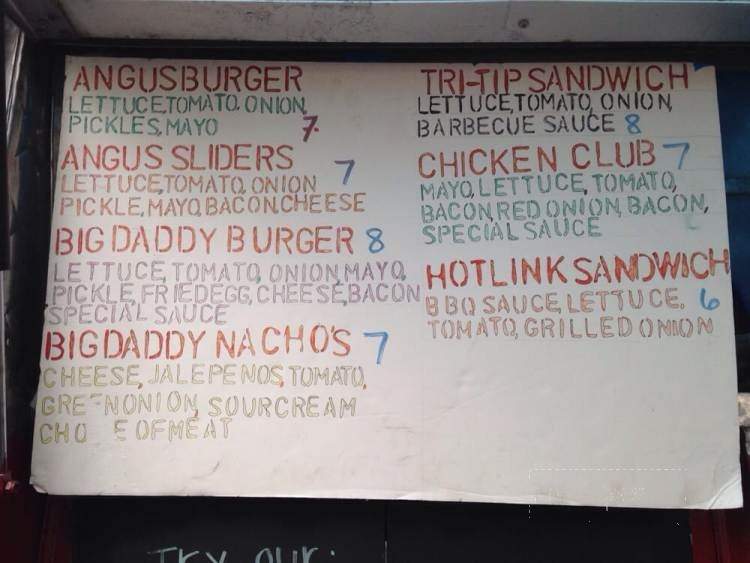 ANGUSBURGER
LETTUCE,TOMATO, ONION,
PICKLES, MAYO 7.
ANGUS SLIDERS
LETTUCE,TOMATO, ONION 7
PICKLE, MAYO, BACON,CHEESE
BIG DADDY BURGER 8
LETTUCE, TOMATO, ONION,MAYO,
PICKLE, FRIEDEGG, CHEESE,BACON
SPECIAL SAUCE
BIGDADDY NACHO'S 7
CHEESE, JALEPENOS, TOMATO,
GREENONION, SOURCREAM
OFMEAT
TRI-TIP SANDWICH
LETTUCE,TOMATO, ONION,
BARBECUE SAUCE 8
CHICKEN CLUB 7
MAYO, LETTUCE, TOMATO,
BACON,RED ONION, BACON,
SPECIAL SAUCE
HOTLINK SANDWICH
BBQ SAUCE, LETTUCE, 6
TOMATO, GRILLED ONION
TRY our: